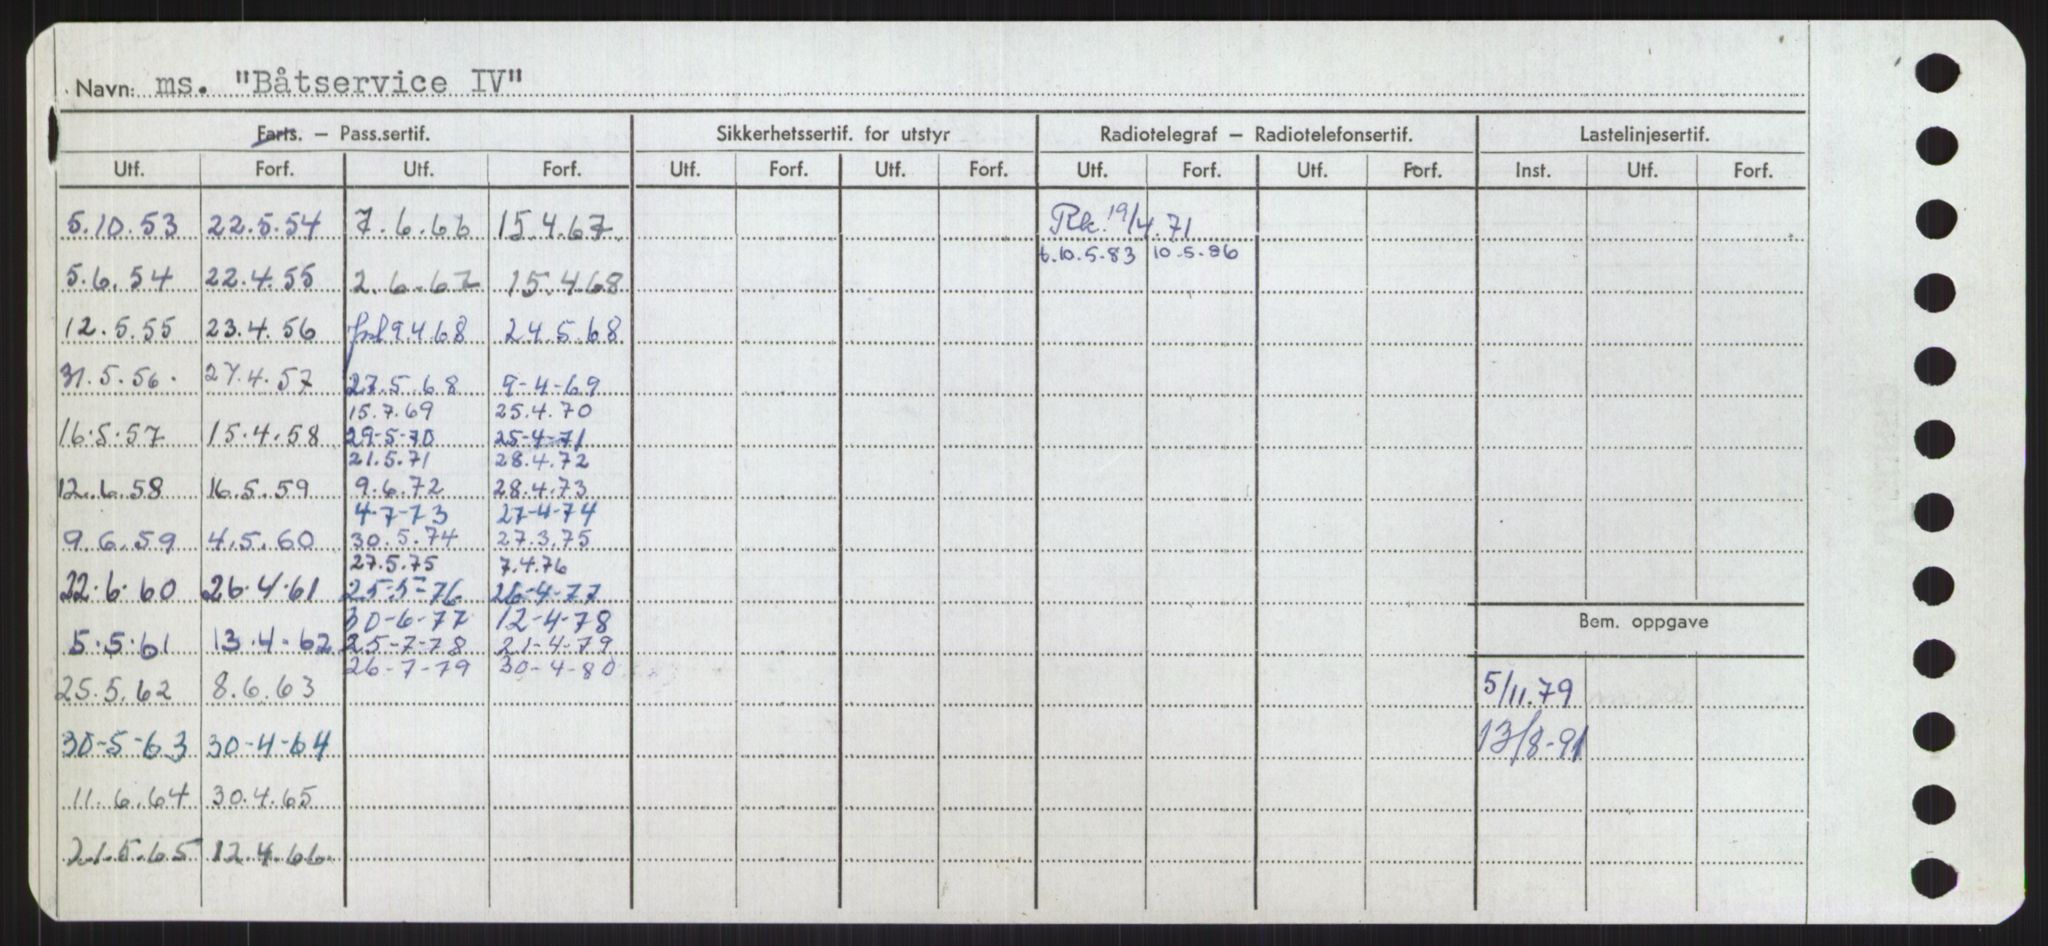 Navn: ms. "Båtservice IV"
Farts. – Pass.sertif. Sikkerhetssertif. for utstyr Radiotelegraf – Radiotelefonsertif. Lastelinjesertif.
Utf. Forf. Utf. Forf. Utf. Forf. Utf. Forf. Utf. Forf. Utf. Forf. Inst. Utf. Forf.
5.10.53 22.5.54 7.6.66 15.4.67 Rk. 19/4.71
t.10.5.83 10.5.86
5.6.54 22.4.55 2.6.67 15.4.68
12.5.55 23.4.56 forl 9.4.68 24.5.68
31.5.56. 27.4.57 27.5.68 9-4-69
15.7.69 25.4.70
16.5.57 15.4.58 29-5-70 25-4-71
21.5.71 28.4.72
12.6.58 16.5.59 9.6.72 28.4.73
4-7-73 27-4-74
9.6.59 4.5.60 30.5.74 27.3.75
27.5.75 7.4.76
22.6.60 26.4.61 25-5-76 26-4-77
30-6-77 12-4-78 Bem. oppgave
5.5.61 13.4-62 25-7-78 21-4-79
26-7-79 30-4-80
25.5.62 8.6.63 5/11.79
30-5-63 30-4-64 13/8-91
11.6.64 30.4.65
21.5.65 12.4.66.